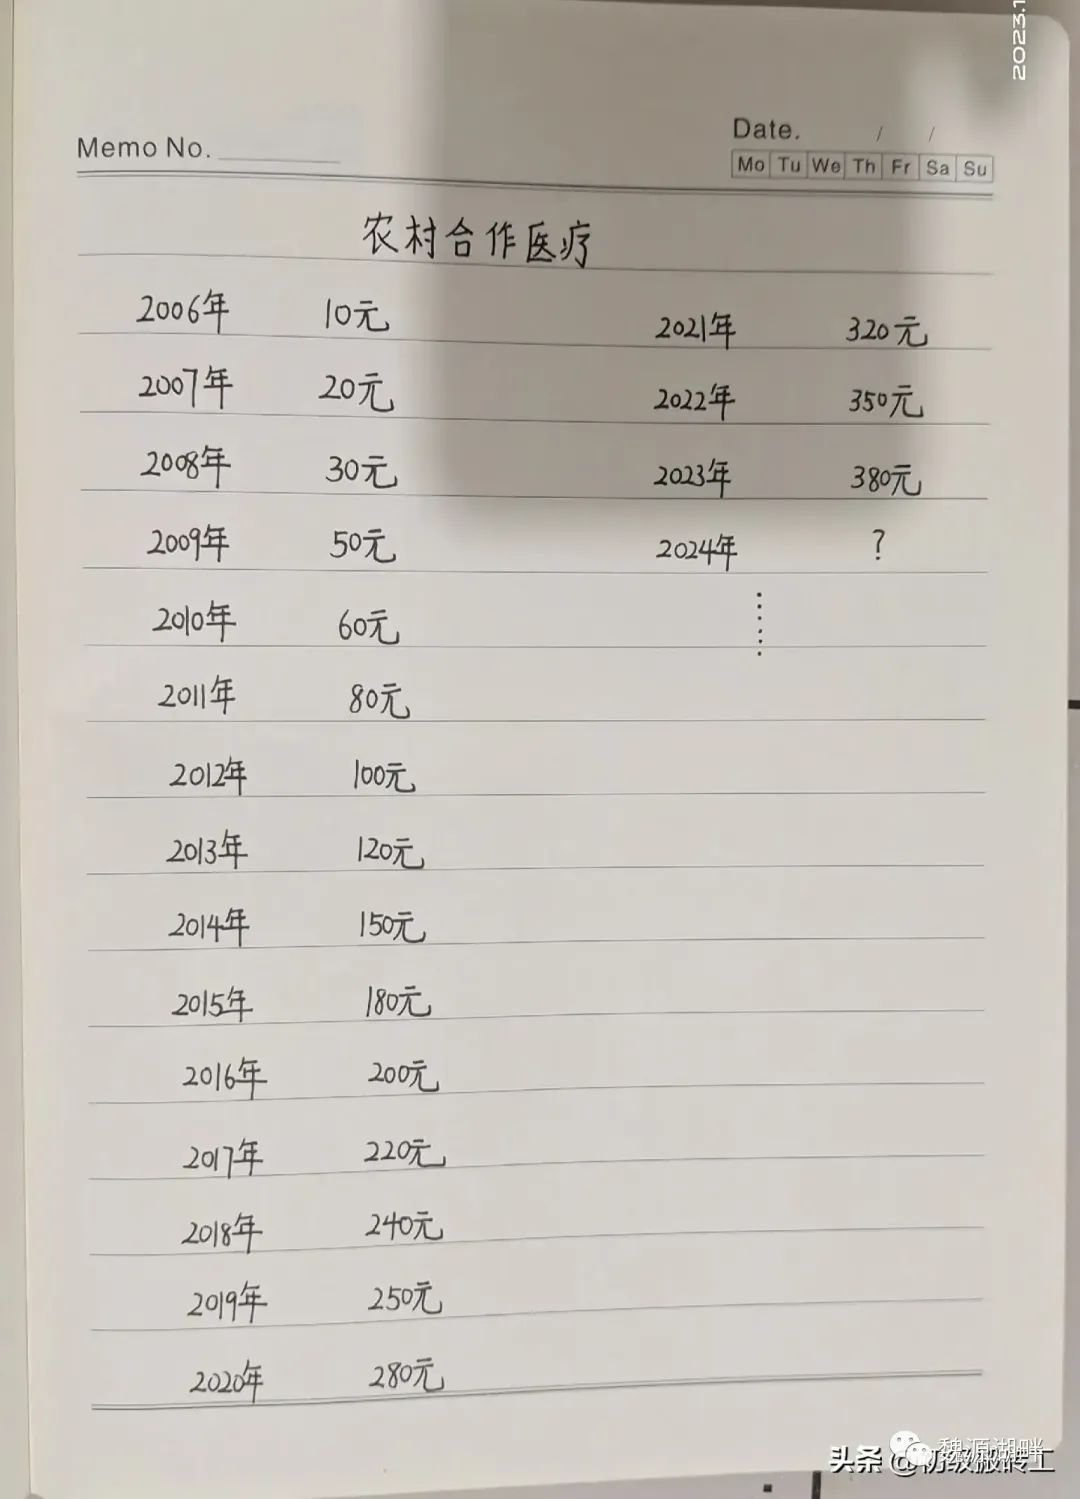 2023.1
Memo No.
Date. / /
Mo Tu We Th Fr Sa Su
农村合作医疗
2006年 10元
2007年 20元
2008年 30元
2009年 50元
2010年 60元
2011年 80元
2012年 100元
2013年 120元
2014年 150元
2015年 180元
2016年 200元
2017年 220元
2018年 240元
2019年 250元
2020年 280元
2021年 320元
2022年 350元
2023年 380元
2024年 ?
……
魏源湖畔
头条 @初级搬砖工